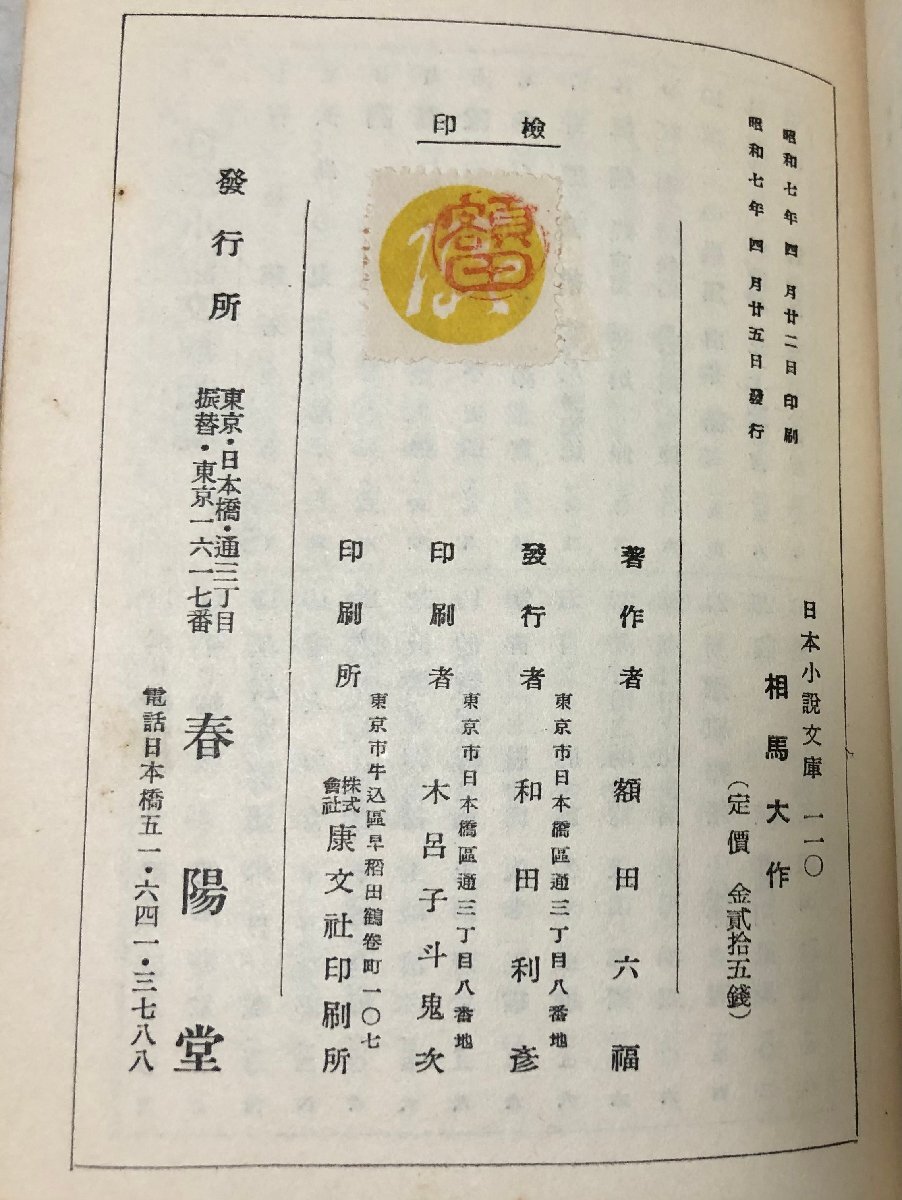 昭和七年四月廿二日印刷
昭和七年四月廿五日發行
日本小說文庫 一一〇
相馬大作
(定價 金貳拾五錢)
檢印
額田
著作者 額田六福
東京市日本橋區通三丁目八番地
發行者 和田利彥
東京市日本橋區通三丁目八番地
印刷者 木呂子斗鬼次
東京市牛込區早稻田鶴卷町一〇七
印刷所 株式會社 康文社印刷所
發行所
東京・日本橋・通三丁目
振替・東京一六一七番
春陽堂
電話日本橋五一・六四一・三七八八